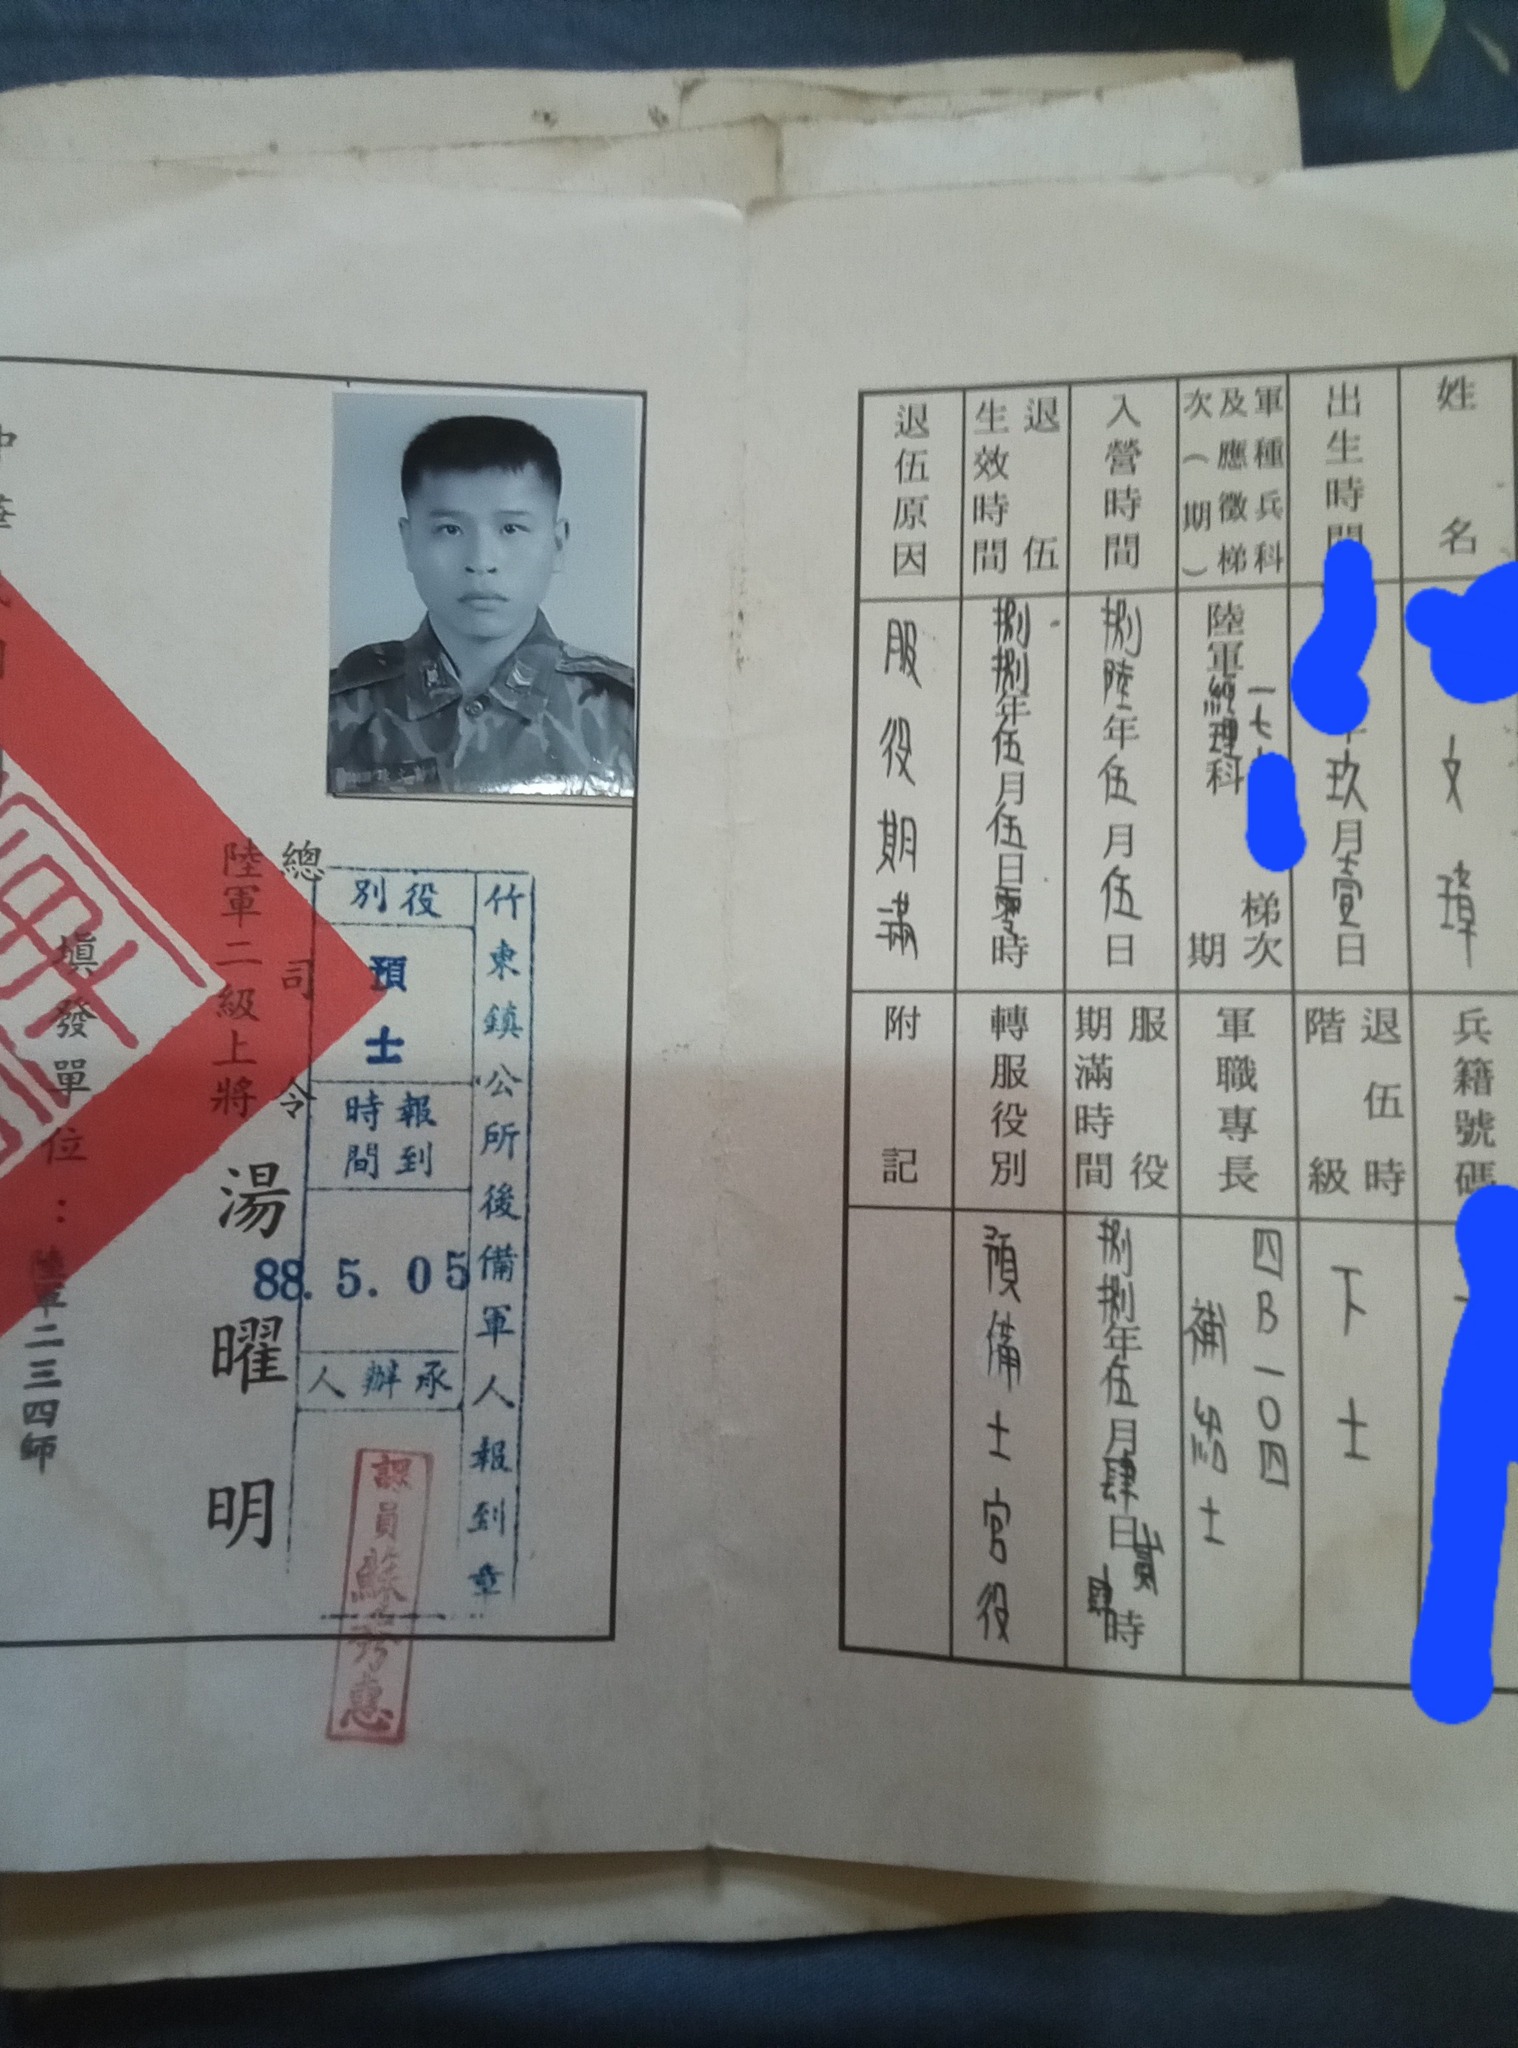 姓名
文璋
兵籍號碼
出生時間
年玖月壹日
退伍時階級
下士
軍種兵科及應徵梯次(期)
陸軍經理科
一七
梯次
期
軍職專長
四B一0四
補給士
入營時間
捌陸年伍月伍日
服役期滿時間
捌捌年伍月肆日貳肆時
退伍生效時間
捌捌年伍月伍日零時
轉服役別
預備士官役
退伍原因
服役期滿
附記
竹東鎮公所後備軍人報到章
役別
預士
報到時間
88.5.05
承辦人
課員蘇秀惠
總司令
陸軍二級上將
湯曜明
填發單位:陸軍二三四師
中華民國